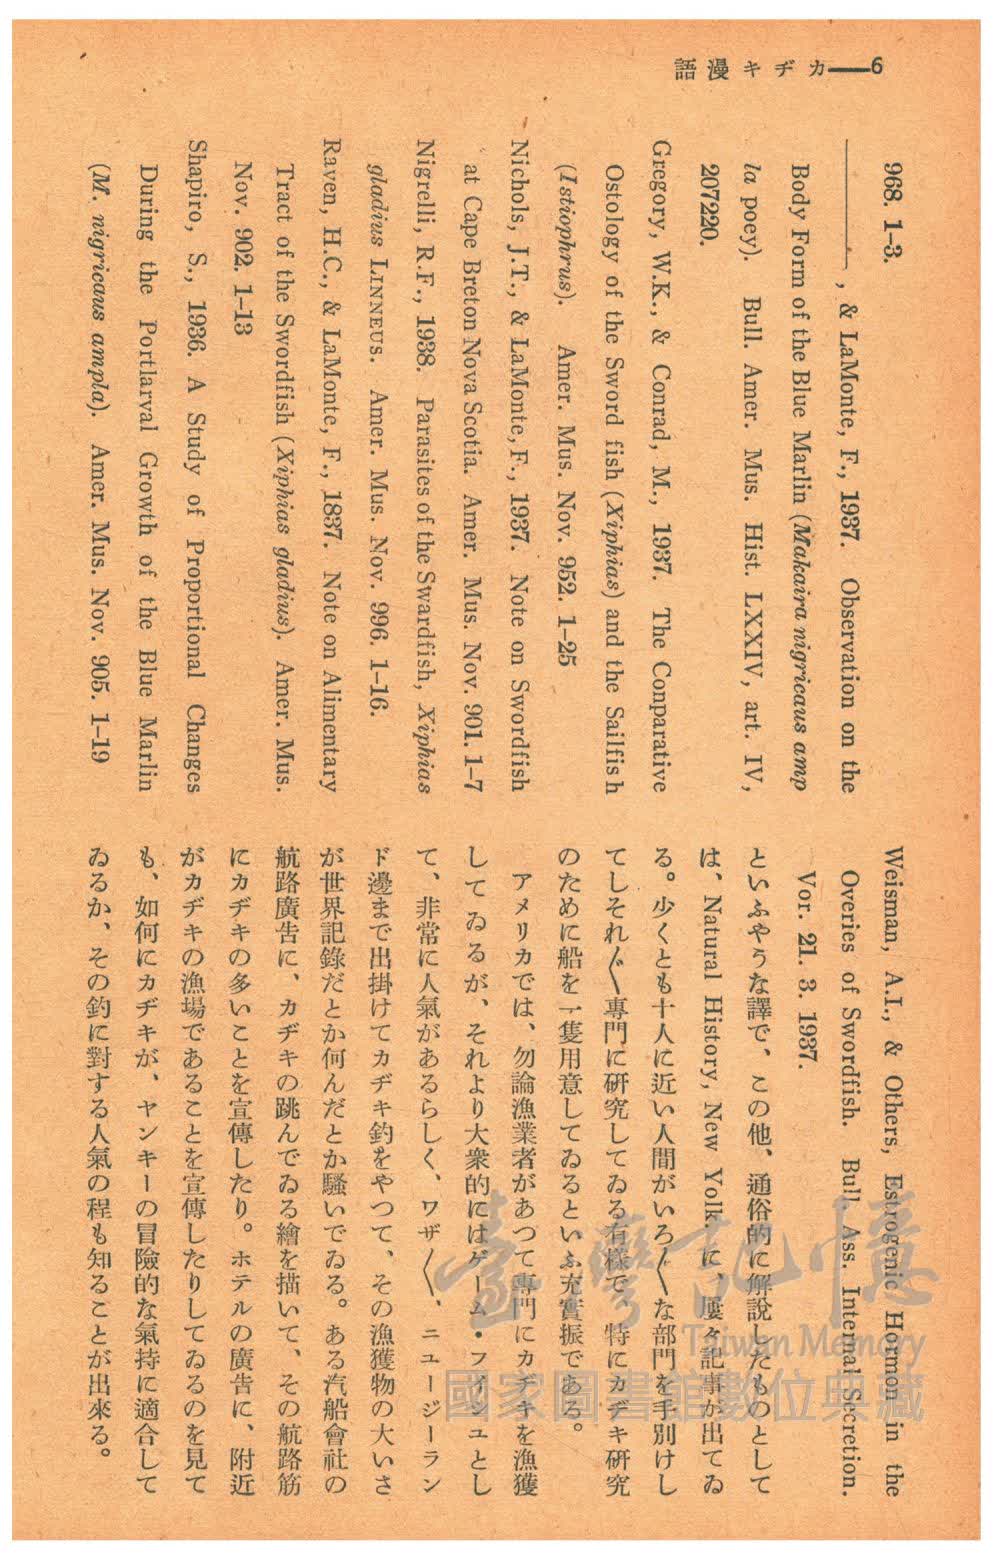 語漫キヂカ——6
968. 1–3.
————, & LaMonte, F., 1937. Observation on the
Body Form of the Blue Marlin (Makaira nigricaus amp
la poey). Bull. Amer. Mus. Hist. LXXIV, art. IV,
207220.
Gregory, W.K., & Conrad, M., 1937. The Conparative
Ostology of the Sword fish (Xiphias) and the Sailfis h
(Istiophrus). Amer. Mus. Nov. 952. 1–25
Nichols, J.T., & LaMonte, F., 1937. Note on Swordfish
at Cape Breton Nova Scotia. Amer. Mus. Nov. 901. 1–7
Nigrelli, R.F., 1938. Parasites of the Swardfish, Xiphias
gladius LINNEUS. Amer. Mus. Nov. 996. 1–16.
Raven, H.C., & LaMonte, F., 1837. Note on Alimentary
Tract of the Swordfish (Xiphias gladius). Amer. Mus.
Nov. 902. 1–13
Shapiro, S., 1936. A Study of Proportional Changes
During the Portlarval Growth of the Blue Marlin
(M. nigricaus ampla). Amer. Mus. Nov. 905. 1–19
Weisman, A.I., & Others, Estrogenic Hormon in the
Overies of Swordfish. Bull. Ass. Internal Secretion.
Vor. 21. 3. 1937.
といふやうな譯で、この他、通俗的に解說したものとして
は、Natural History, New Yolk. に、屢々記事が出てゐ
る。少くとも十人に近い人間がいろ〳〵な部門を手別けし
てしそれ〴〵專門に硏究してゐる有樣で、特にカヂキ硏究
のために船を一隻用意してゐるといふ充實振である。
アメリカでは、勿論漁業者があつて專門にカヂキを漁獲
してゐるが、それより大衆的にはゲーム・フイシユとし
て、非常に人氣があるらしく、ワザ〳〵、ニユージーラン
ド邊まで出掛けてカヂキ釣をやつて、その漁獲物の大いさ
が世界記錄だとか何んだとか騷いでゐる。ある汽船會社の
航路廣告に、カヂキの跳んでゐる繪を描いて、その航路筋
にカヂキの多いことを宣傳したり。ホテルの廣告に、附近
がカヂキの漁場であることを宣傳したりしてゐるのを見て
も、如何にカヂキが、ヤンキーの冒險的な氣持に適合して
ゐるか、その釣に對する人氣の程も知ることが出來る。
臺灣記憶
Taiwan Memory
國家圖書館數位典藏